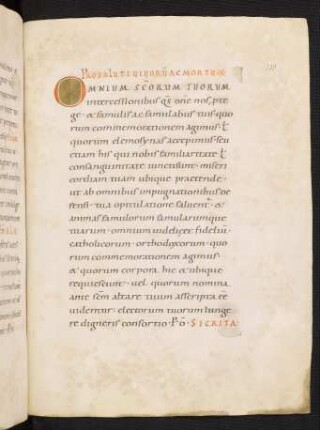 PRO SALUTE UIUORU AC MORTUOR
OMNIUM SCORUM TUORUM
intercessionibus qs dne nos prote
ge & famulis ac famulabus tuis quo
rum commemorationem agimus t
quorum elemosynas accepimus seu
etiam his qui nobis familiaritate t
consanguinitate iuncti sunt miseri
cordiam tuam ubique praetende
ut ab omnibus impugnationibus de
fensi tua opitulatione saluent &
animas famulorum famularumque
tuarum omnium uidelicet fideliu
catholicorum orthodoxorum quo
rum commemorationem agimus
& quorum corpora hic & ubique
requiescunt uel quorum nomina
ante scm altare tuum asscripta ee
uidentur electorum tuorum iunge
re digneris consortio P SECRETA